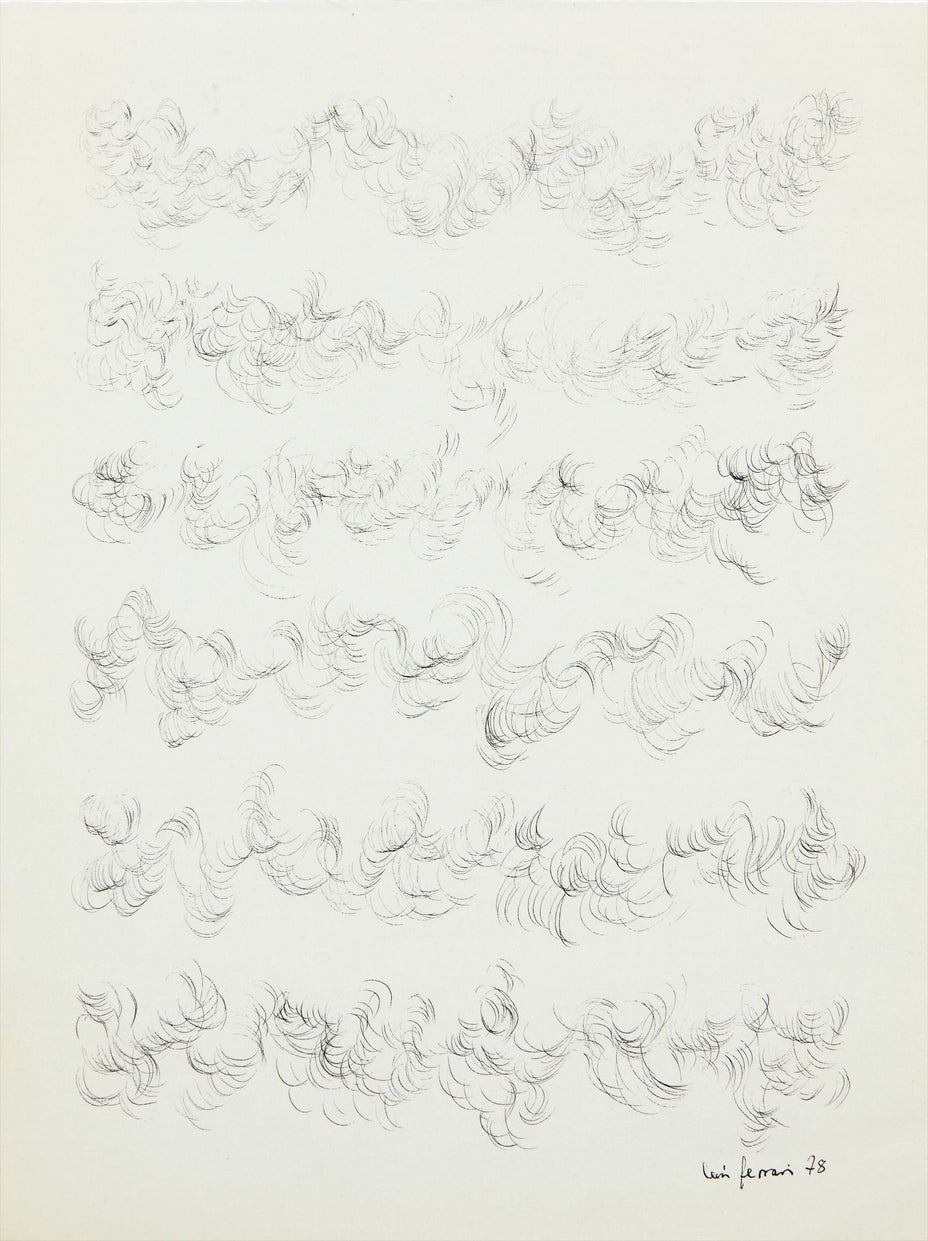 León Ferrari 78